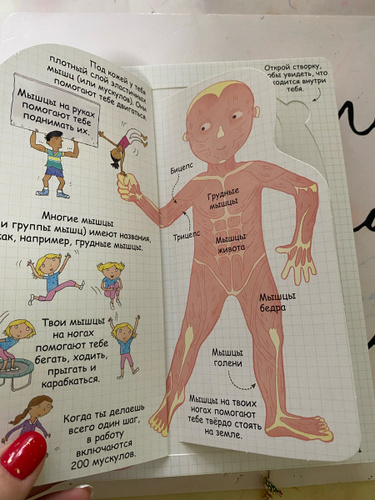 Под кожей у тебя
плотный слой эластичных
мышц (или мускулов). Они
помогают тебе двигаться.
Мышцы на руках
помогают тебе
поднимать их.
Многие мышцы
и группы мышц) имеют названия,
как, например, грудные мышцы.
Твои мышцы
на ногах
помогают тебе
бегать, ходить,
прыгать и
карабкаться.
Когда ты делаешь
всего один шаг,
в работу
включаются
200 мускулов.
Открой створку,
чтобы увидеть, что
находится внутри
тебя.
Бицепс
Трицепс
Грудные
мышцы
Мышцы
живота
Мышцы
бедра
Мышцы
голени
Мышцы на твоих
ногах помогают
тебе твёрдо стоять
на земле.